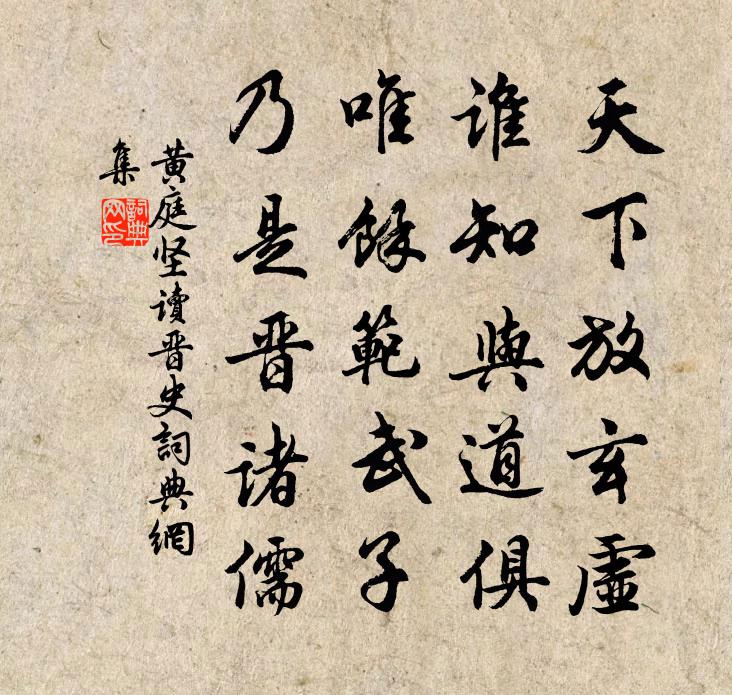 天下放玄虛
誰知與道俱
唯餘範武子
乃是晋諸儒
黃庭坚讀晋史詞典網
集
詞典网印